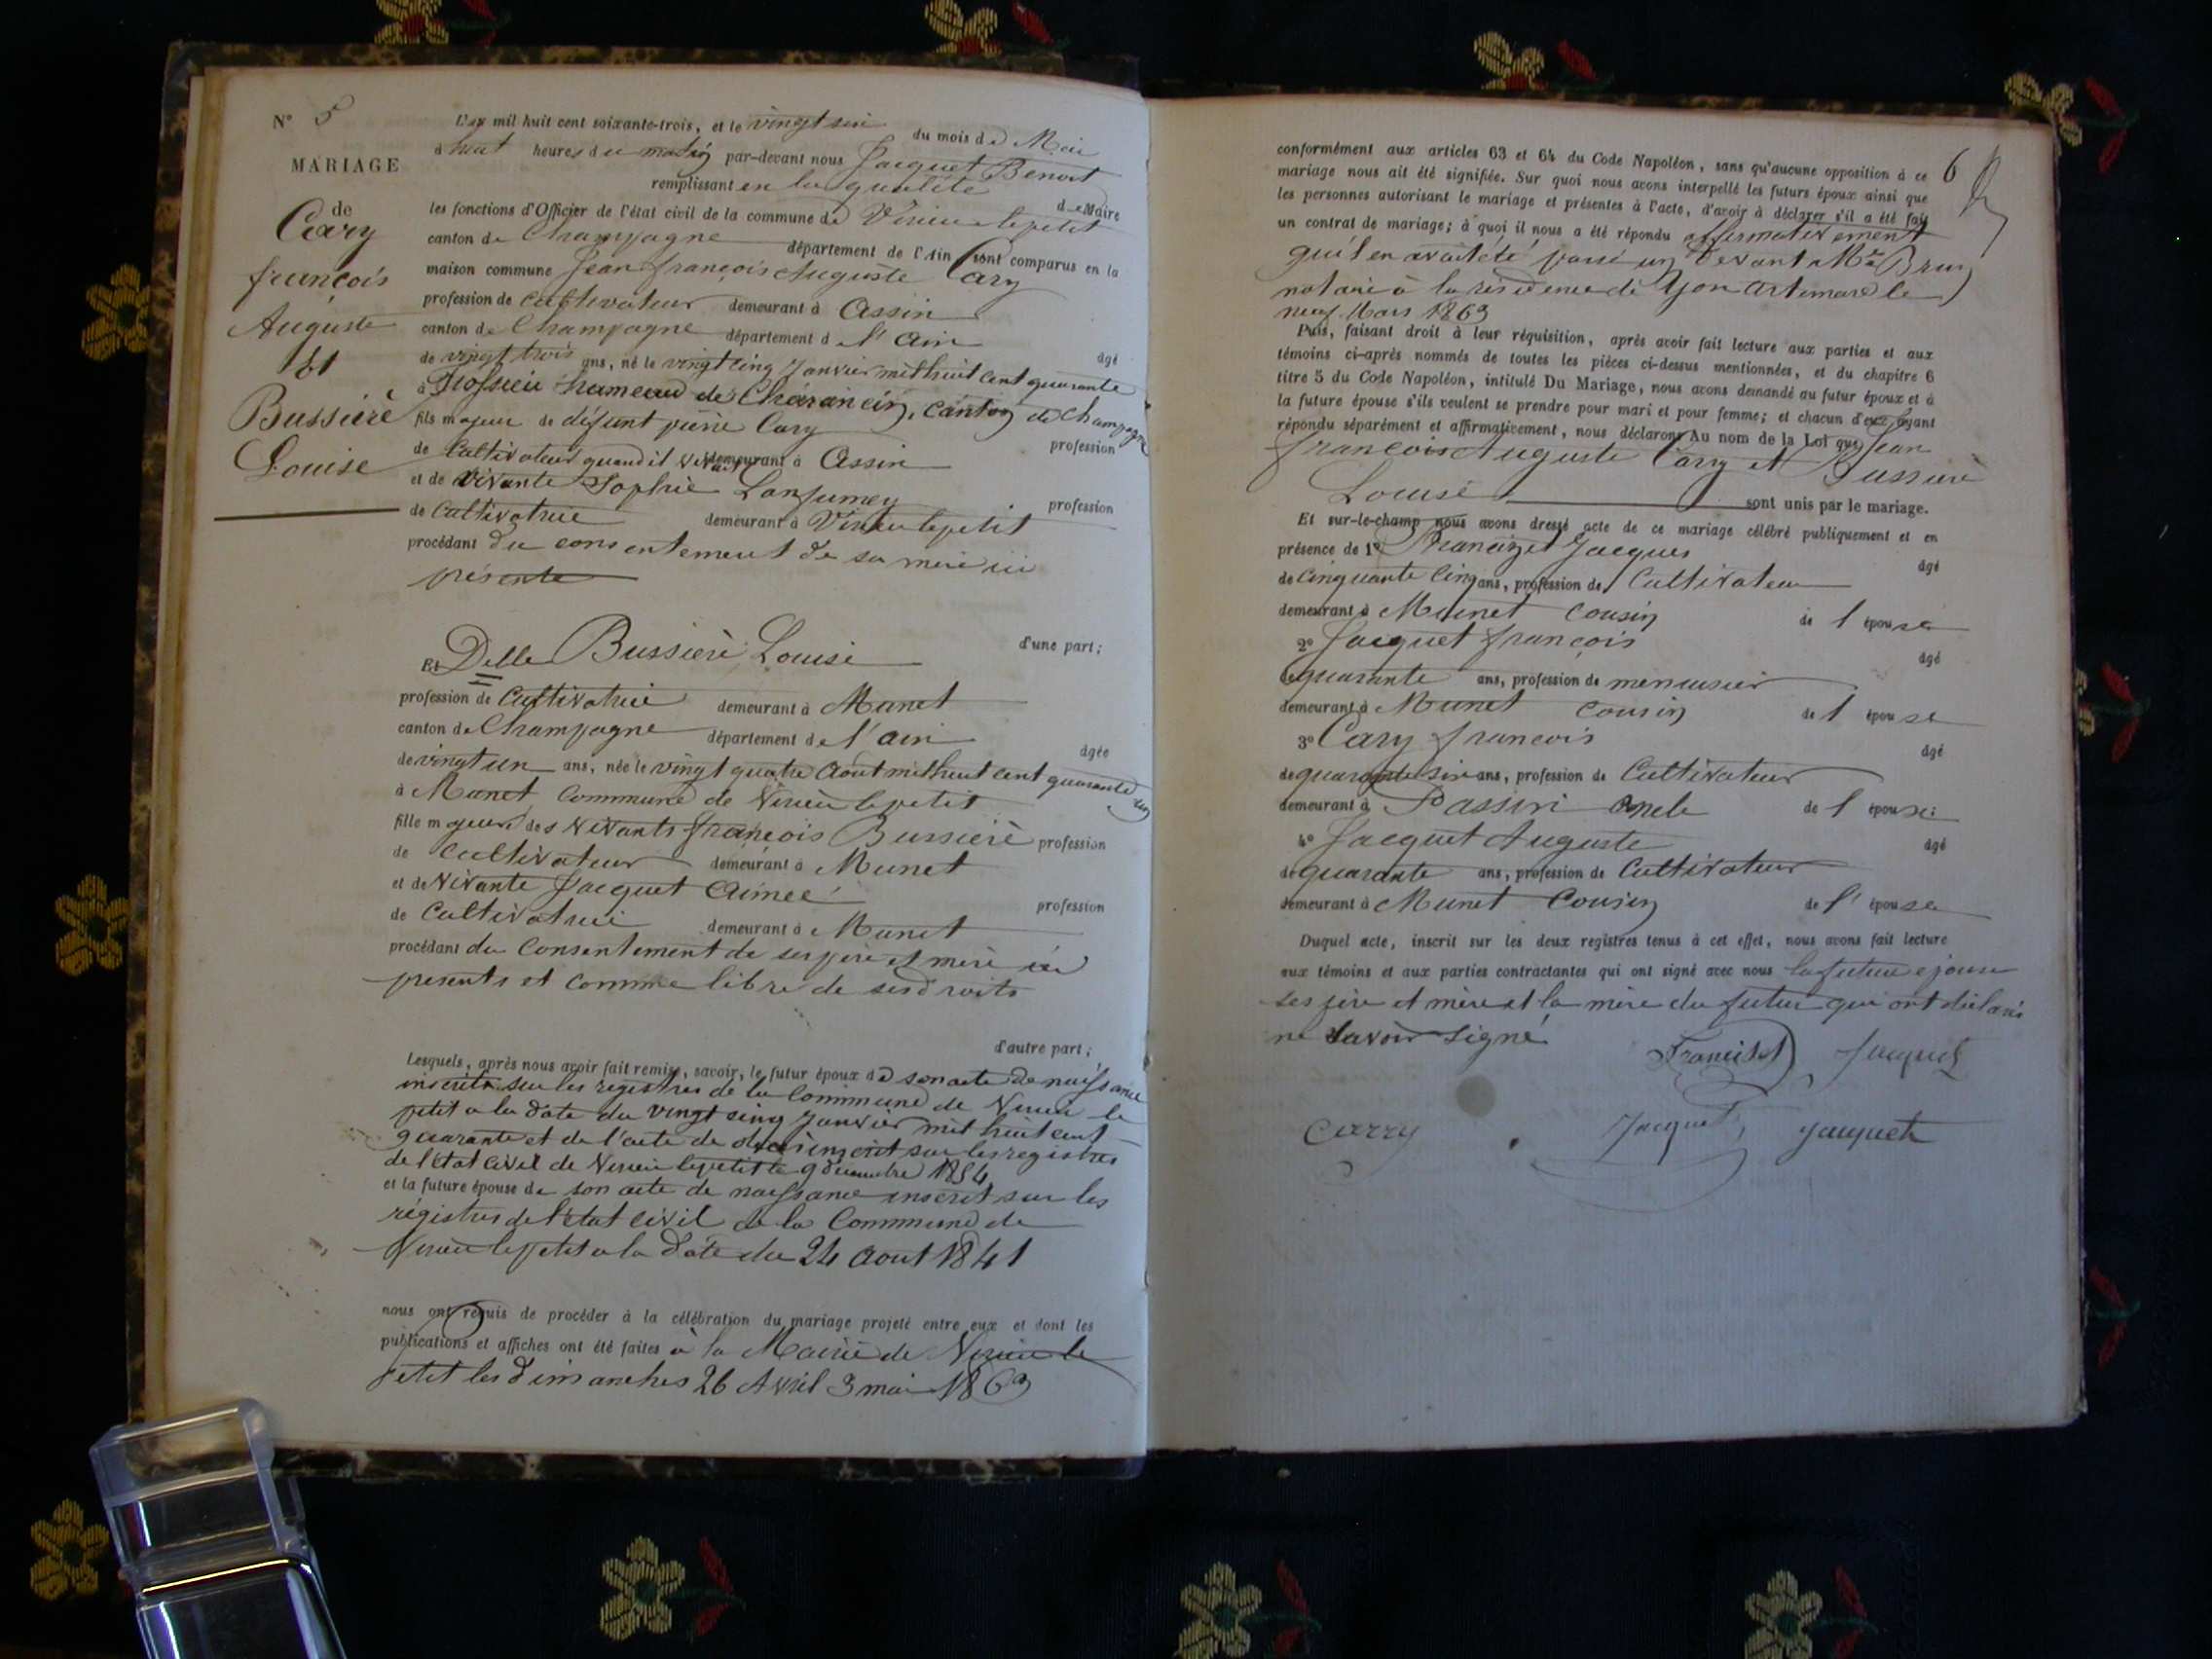 N° 5
MARIAGE
de
Cary
françois
Auguste
Et
Bussière
Louise
L'an mil huit cent soixante-trois, et le vingt six du mois de Mai
à huit heures du matin par-devant nous Jacquet Benoit
remplissant en la qualité de Maire
les fonctions d'Officier de l'état civil de la commune de Virieu lepetit
canton de Champagne département de l'Ain sont comparus en la
maison commune Jean françois Auguste Cary
profession de cultivateur demeurant à Assin
canton de Champagne département de l'ain
âgé
de vingt trois ans, né le vingt cinq Janvier mil huit cent quarante
à hameau de Charancin, canton de Champagne
fils majeur de défunt pierre Cary
profession
de Cultivateur quand il vivait demeurant à Assin
et de vivante Sophie Lanfumey
profession
de Cultivatrice demeurant à Virieu lepetit
procédant du consentement de sa mère ici
présente
d'une part;
Et Delle Bussière Louise
profession de Cultivatrice demeurant à Munet
canton de Champagne département de l'ain
âgée
de vingt un ans, née le vingt quatre Aout mil huit cent quarante un
à Munet Commune de Virieu lepetit
fille majeure des vivants françois Bussière profession
de Cultivateur demeurant à Munet
et de vivante Jacquet Aimée
profession
de Cultivatrice demeurant à Munet
procédant du Consentement de ses père et mère ici
présents et comme libre de ses droits
d'autre part;
Lesquels, après nous avoir fait remise, savoir, le futur époux de son acte de naissance
inscrit sur les registres de la Commune de Virieu le
petit a la date du vingt cinq Janvier mil huit cent
quarante et de l'acte de décès inscrit sur les registres
de l'état civil de Virieu lepetit le 9 décembre 1854
et la future épouse de son acte de naissance inscrit sur les
régistres de l'état civil de la Commune de
Virieu lepetit a la date du 24 aout 1841
nous ont requis de procéder à la célébration du mariage projeté entre eux et dont les
publications et affiches ont été faites à la Mairie de Virieu le
petit les dimanches 26 Avril 3 mai 1863
6
conformément aux articles 63 et 64 du Code Napoléon, sans qu'aucune opposition à ce
mariage nous ait été signifiée. Sur quoi nous avons interpellé les futurs époux ainsi que
les personnes autorisant le mariage et présentes à l'acte, d'avoir à déclarer s'il a été fait
un contrat de mariage; à quoi il nous a été répondu affirmativement
qu'il en avait été passé un devant Me Brun
notaire à la résidence de Yon Artemare le
neuf Mars 1863
Puis, faisant droit à leur réquisition, après avoir fait lecture aux parties et aux
témoins ci-après nommés de toutes les pièces ci-dessus mentionnées, et du chapitre 6
titre 5 du Code Napoléon, intitulé Du Mariage, nous avons demandé au futur époux et à
la future épouse s'ils veulent se prendre pour mari et pour femme; et chacun d'eux ayant
répondu séparément et affirmativement, nous déclarons Au nom de la Loi que Jean
françois Auguste Cary et Bussière
Louise sont unis par le mariage.
Et sur-le-champ nous avons dressé acte de ce mariage célébré publiquement et en
présence de 1° Jacques
âgé
de cinquante cinq ans, profession de Cultivateur
demeurant à Munet cousin de l'épouse
2° Jacquet françois
âgé
de quarante ans, profession de menuisier
demeurant à Munet cousin de l'épouse
3° Cary françois
âgé
de quarante six ans, profession de Cultivateur
demeurant à Passin oncle de l'épouse
4° Jacquet Auguste
âgé
de quarante ans, profession de Cultivateur
demeurant à Munet Cousin de l'épouse
Duquel acte, inscrit sur les deux registres tenus à cet effet, nous avons fait lecture
aux témoins et aux parties contractantes qui ont signé avec nous la future épouse
ses père et mère et la mère du futur qui ont déclaré
ne savoir signé
Jacquet
Carry
Jacquet
Jacquet